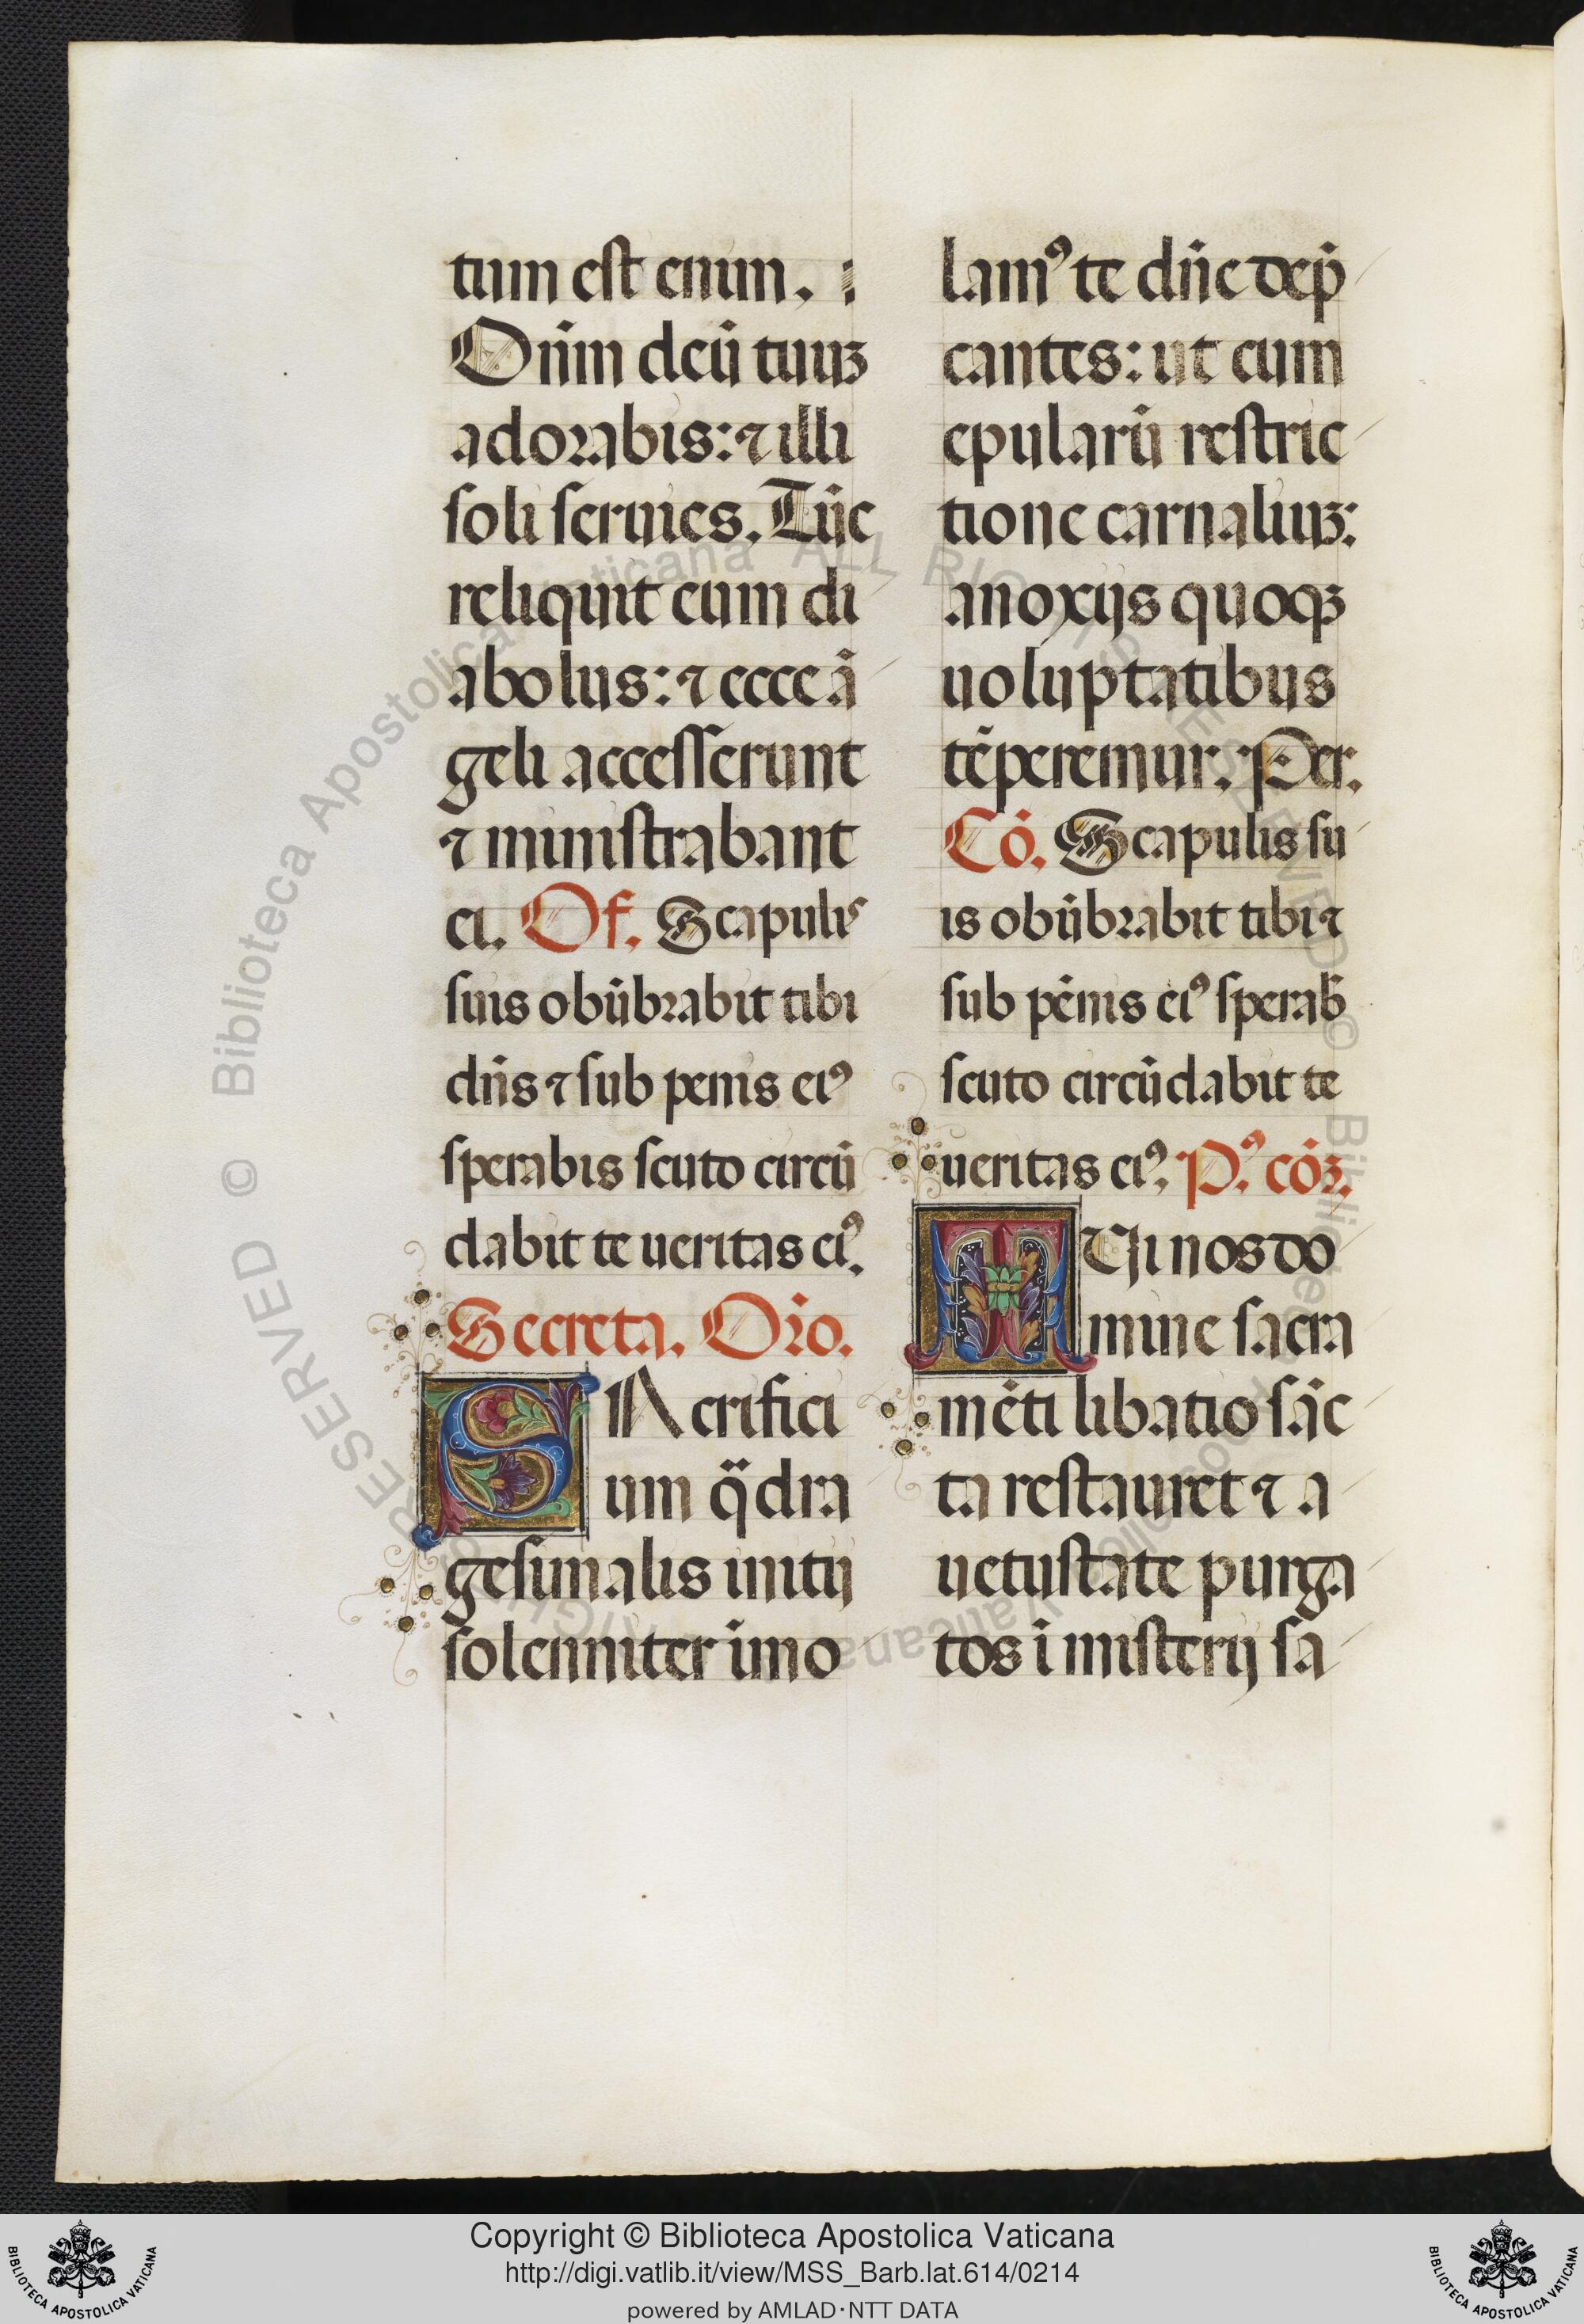 tum est enim.
Dn̄m deū tuuꝫ
adorabis: ⁊ illi
soli seruies. Tūc
reliquit eum di
abolus: ⁊ ecce ā
geli accesserunt
⁊ ministrabant
ei. Of. Scapulis
suis obūbrabit tibi
dn̄s ⁊ sub penis eiꝰ
sperabis scuto circū
dabit te ueritas eiꝰ.
Secreta. Oro.
SAcrifici
um q̈dra
gesimalis initij
solenniter imo
lamꝰ te dn̄e dep̄
cantes: ut cum
epularū restric
tione carnaliuꝫ:
anoxijs quoqꝫ
uoluptatibus
tēperemur. Per.
Cō. Scapulis su
is obūbrabit tibi ⁊
sub pēnis eiꝰ sperab̄
scuto circūdabit te
ueritas eiꝰ. Pꝰ. cōꝫ.
TUi nos do
mine sacra
mēti libatio sāc
ta restauret ⁊ a
uetustate purga
tos ī misterij sa
Copyright © Biblioteca Apostolica Vaticana
http://digi.vatlib.it/view/MSS_Barb.lat.614/0214
powered by AMLAD·NTT DATA
BIBLIOTECA APOSTOLICA VATICANA
BIBLIOTECA APOSTOLICA VATICANA